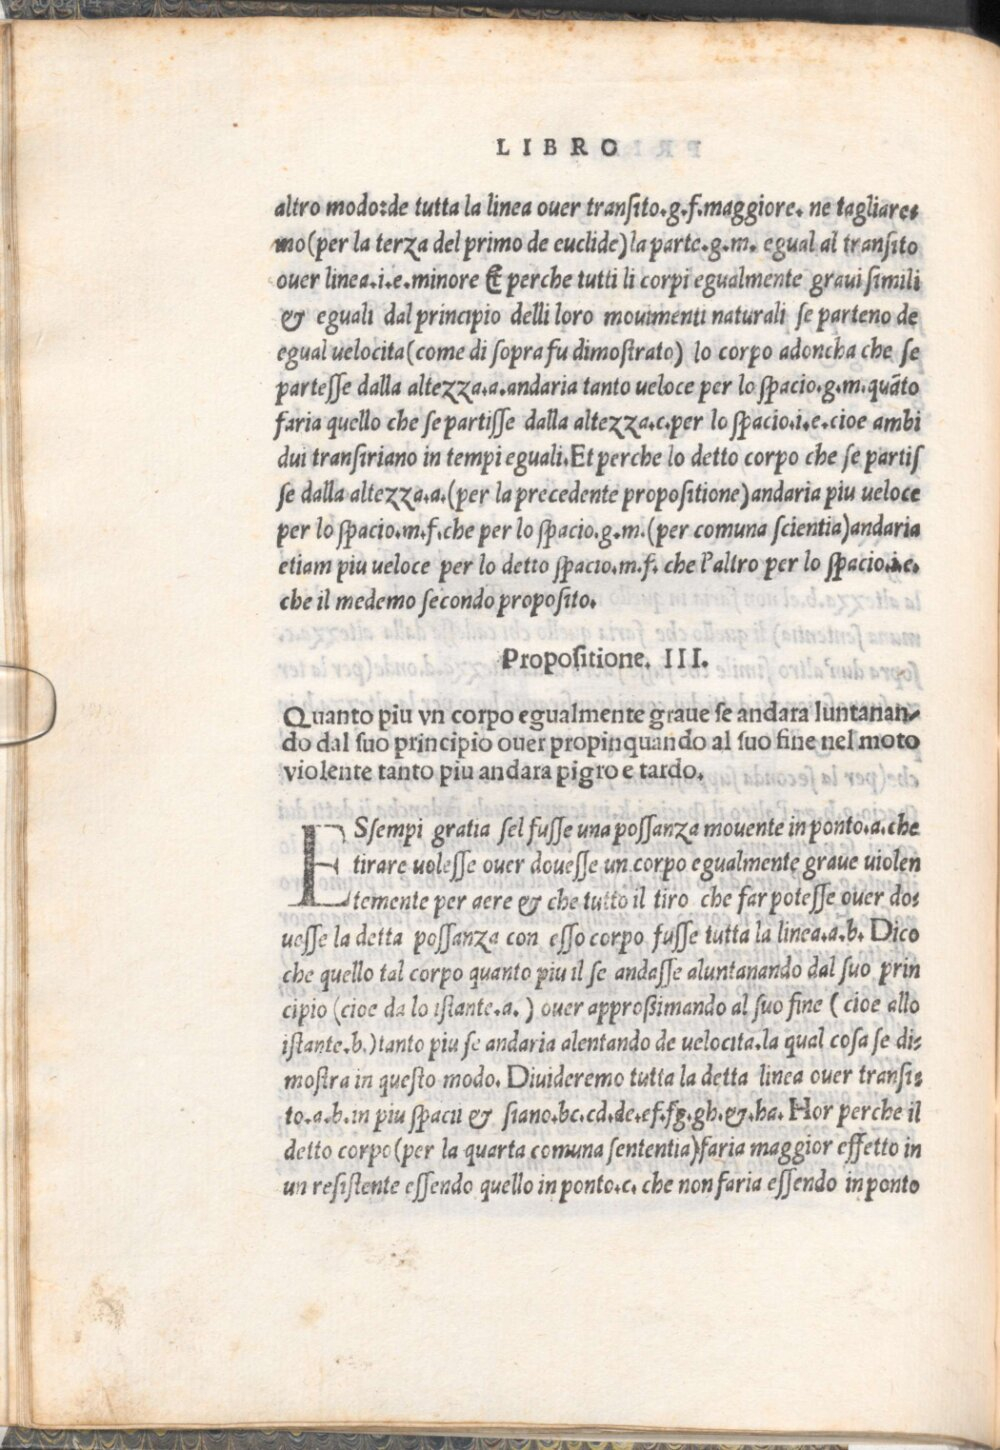 LIBRO
altro modo:de tutta la linea ouer tranſito.g.f.maggiore. ne tagliare:
mo(per la terza del primo de euclide)la parte.g.m. egual al tranſito
ouer linea.i.e.minore & perche tutti li corpi egualmente graui ſimili
& eguali dal principio delli loro mouimenti naturali ſe parteno de
egual uelocita(come di ſopra fu dimoſtrato) lo corpo adoncha che ſe
parteſſe dalla altezza.a.andaria tanto ueloce per lo ſpacio.g.m.quãto
faria quello che ſe partiſſe dalla altezza.c.per lo ſpacio.i.e.cioe ambi
dui tranſiriano in tempi eguali.Et perche lo detto corpo che ſe partiſ
ſe dalla altezza.a.(per la precedente propoſitione)andaria piu ueloce
per lo ſpacio.m.f.che per lo ſpacio.g.m.(per comuna ſcientia)andaria
etiam piu ueloce per lo detto ſpacio.m.f. che l'altro per lo ſpacio.i.e.
che il medemo ſecondo propoſito.
Propoſitione. III.
Quanto piu vn corpo egualmente graue ſe andara luntanan-
do dal ſuo principio ouer propinquando al ſuo fine nel moto
violente tanto piu andara pigro e tardo.
ESſempi gratia ſel fuſſe una poſſanza mouente in ponto.a.che
tirare uoleſſe ouer doueſſe un corpo egualmente graue uiolen
temente per aere & che tutto il tiro che far poteſſe ouer do:
ueſſe la detta poſſanza con eſſo corpo fuſſe tutta la linea.a.b. Dico
che quello tal corpo quanto piu il ſe andaſſe aluntanando dal ſuo prin
cipio (cioe da lo iſtante.a.) ouer approßimando al ſuo fine ( cioe allo
iſtante.b.)tanto piu ſe andaria alentando de uelocita.la qual coſa ſe di:
moſtra in queſto modo. Diuideremo tutta la detta linea ouer tranſi:
to.a.b.in piu ſpacii & ſiano.bc.cd.de.ef.fg.gh.&.ha. Hor perche il
detto corpo(per la quarta comuna ſententia)faria maggior effetto in
un reſiſtente eſſendo quello in ponto.c. che non faria eſſendo in ponto